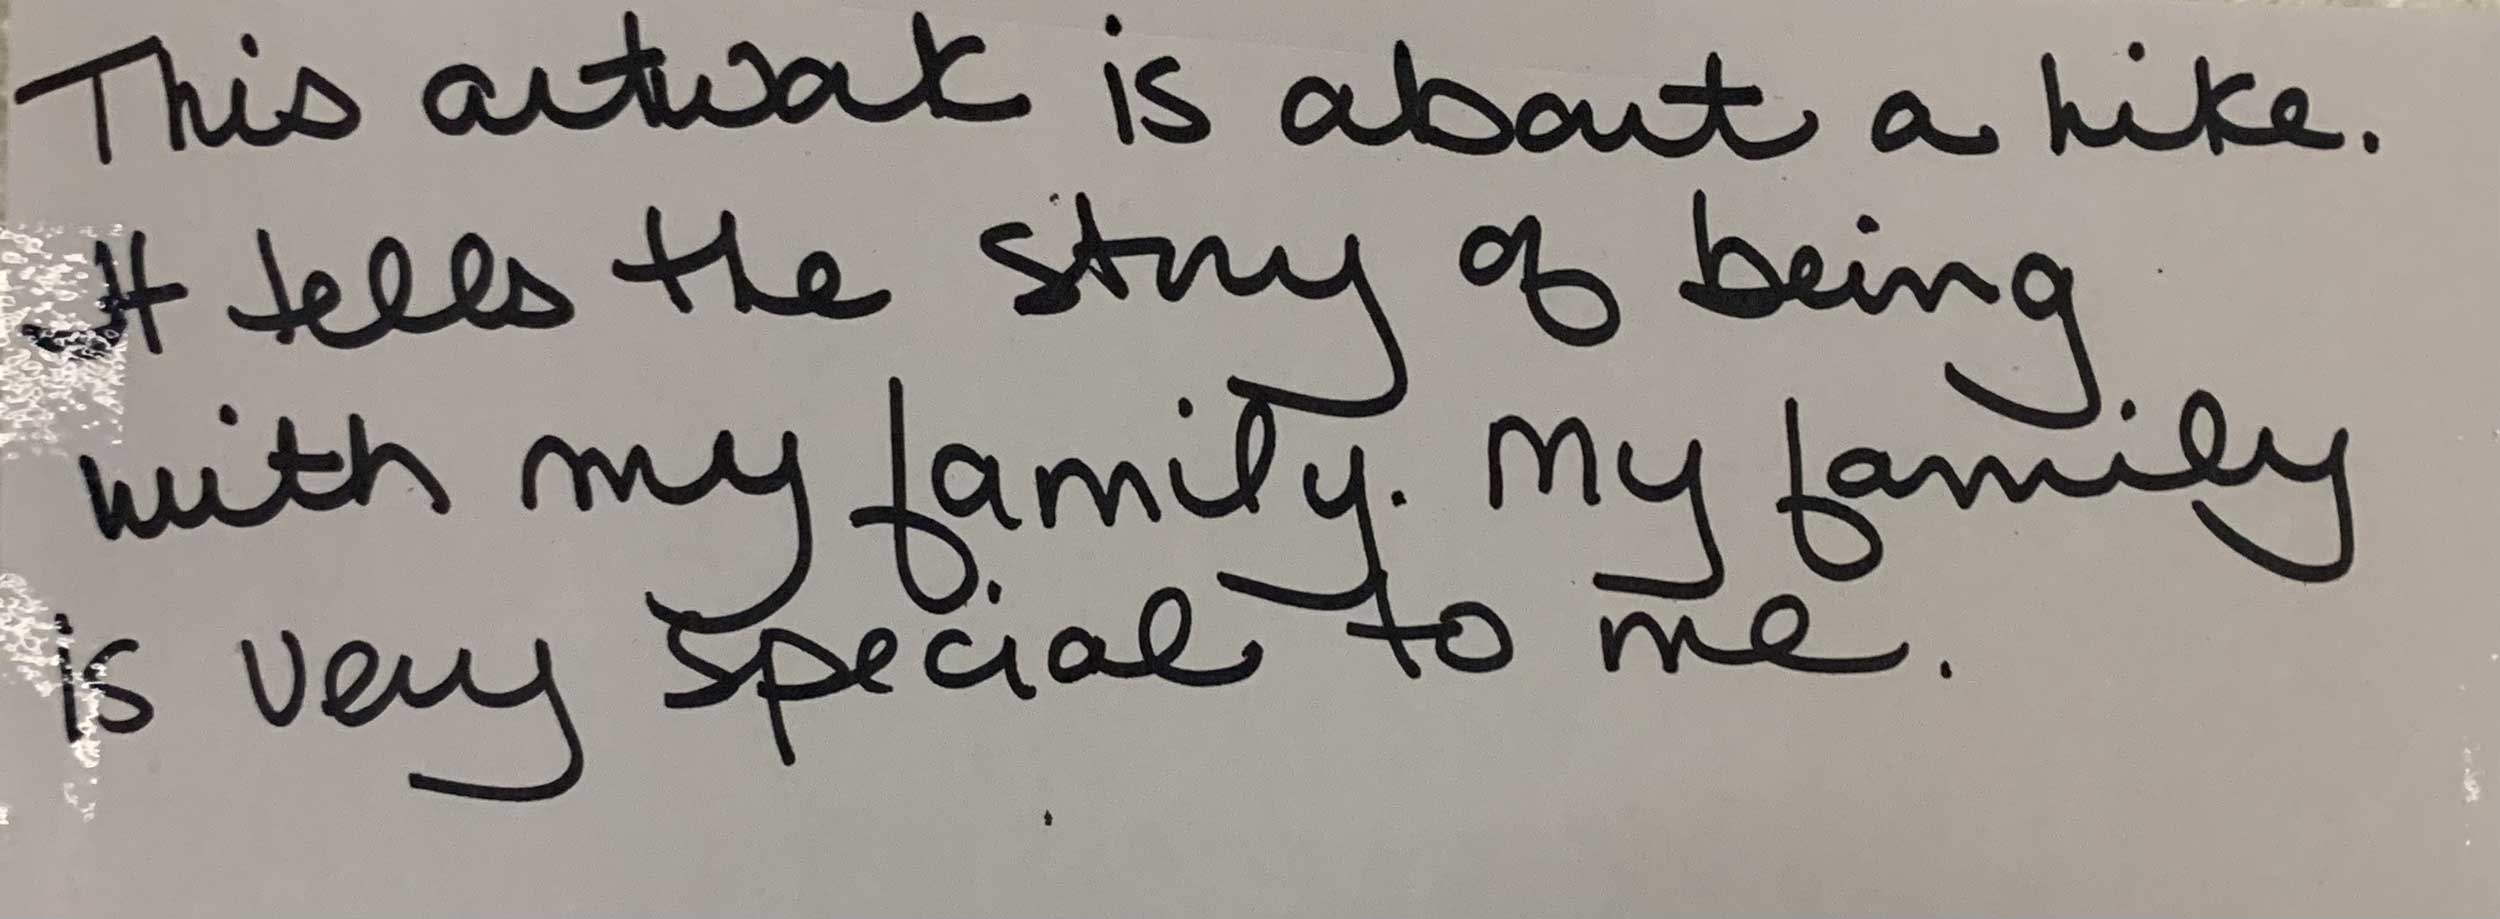 This artwork is about a hike.
It tells the story of being
with my family. My family
is very special to me.